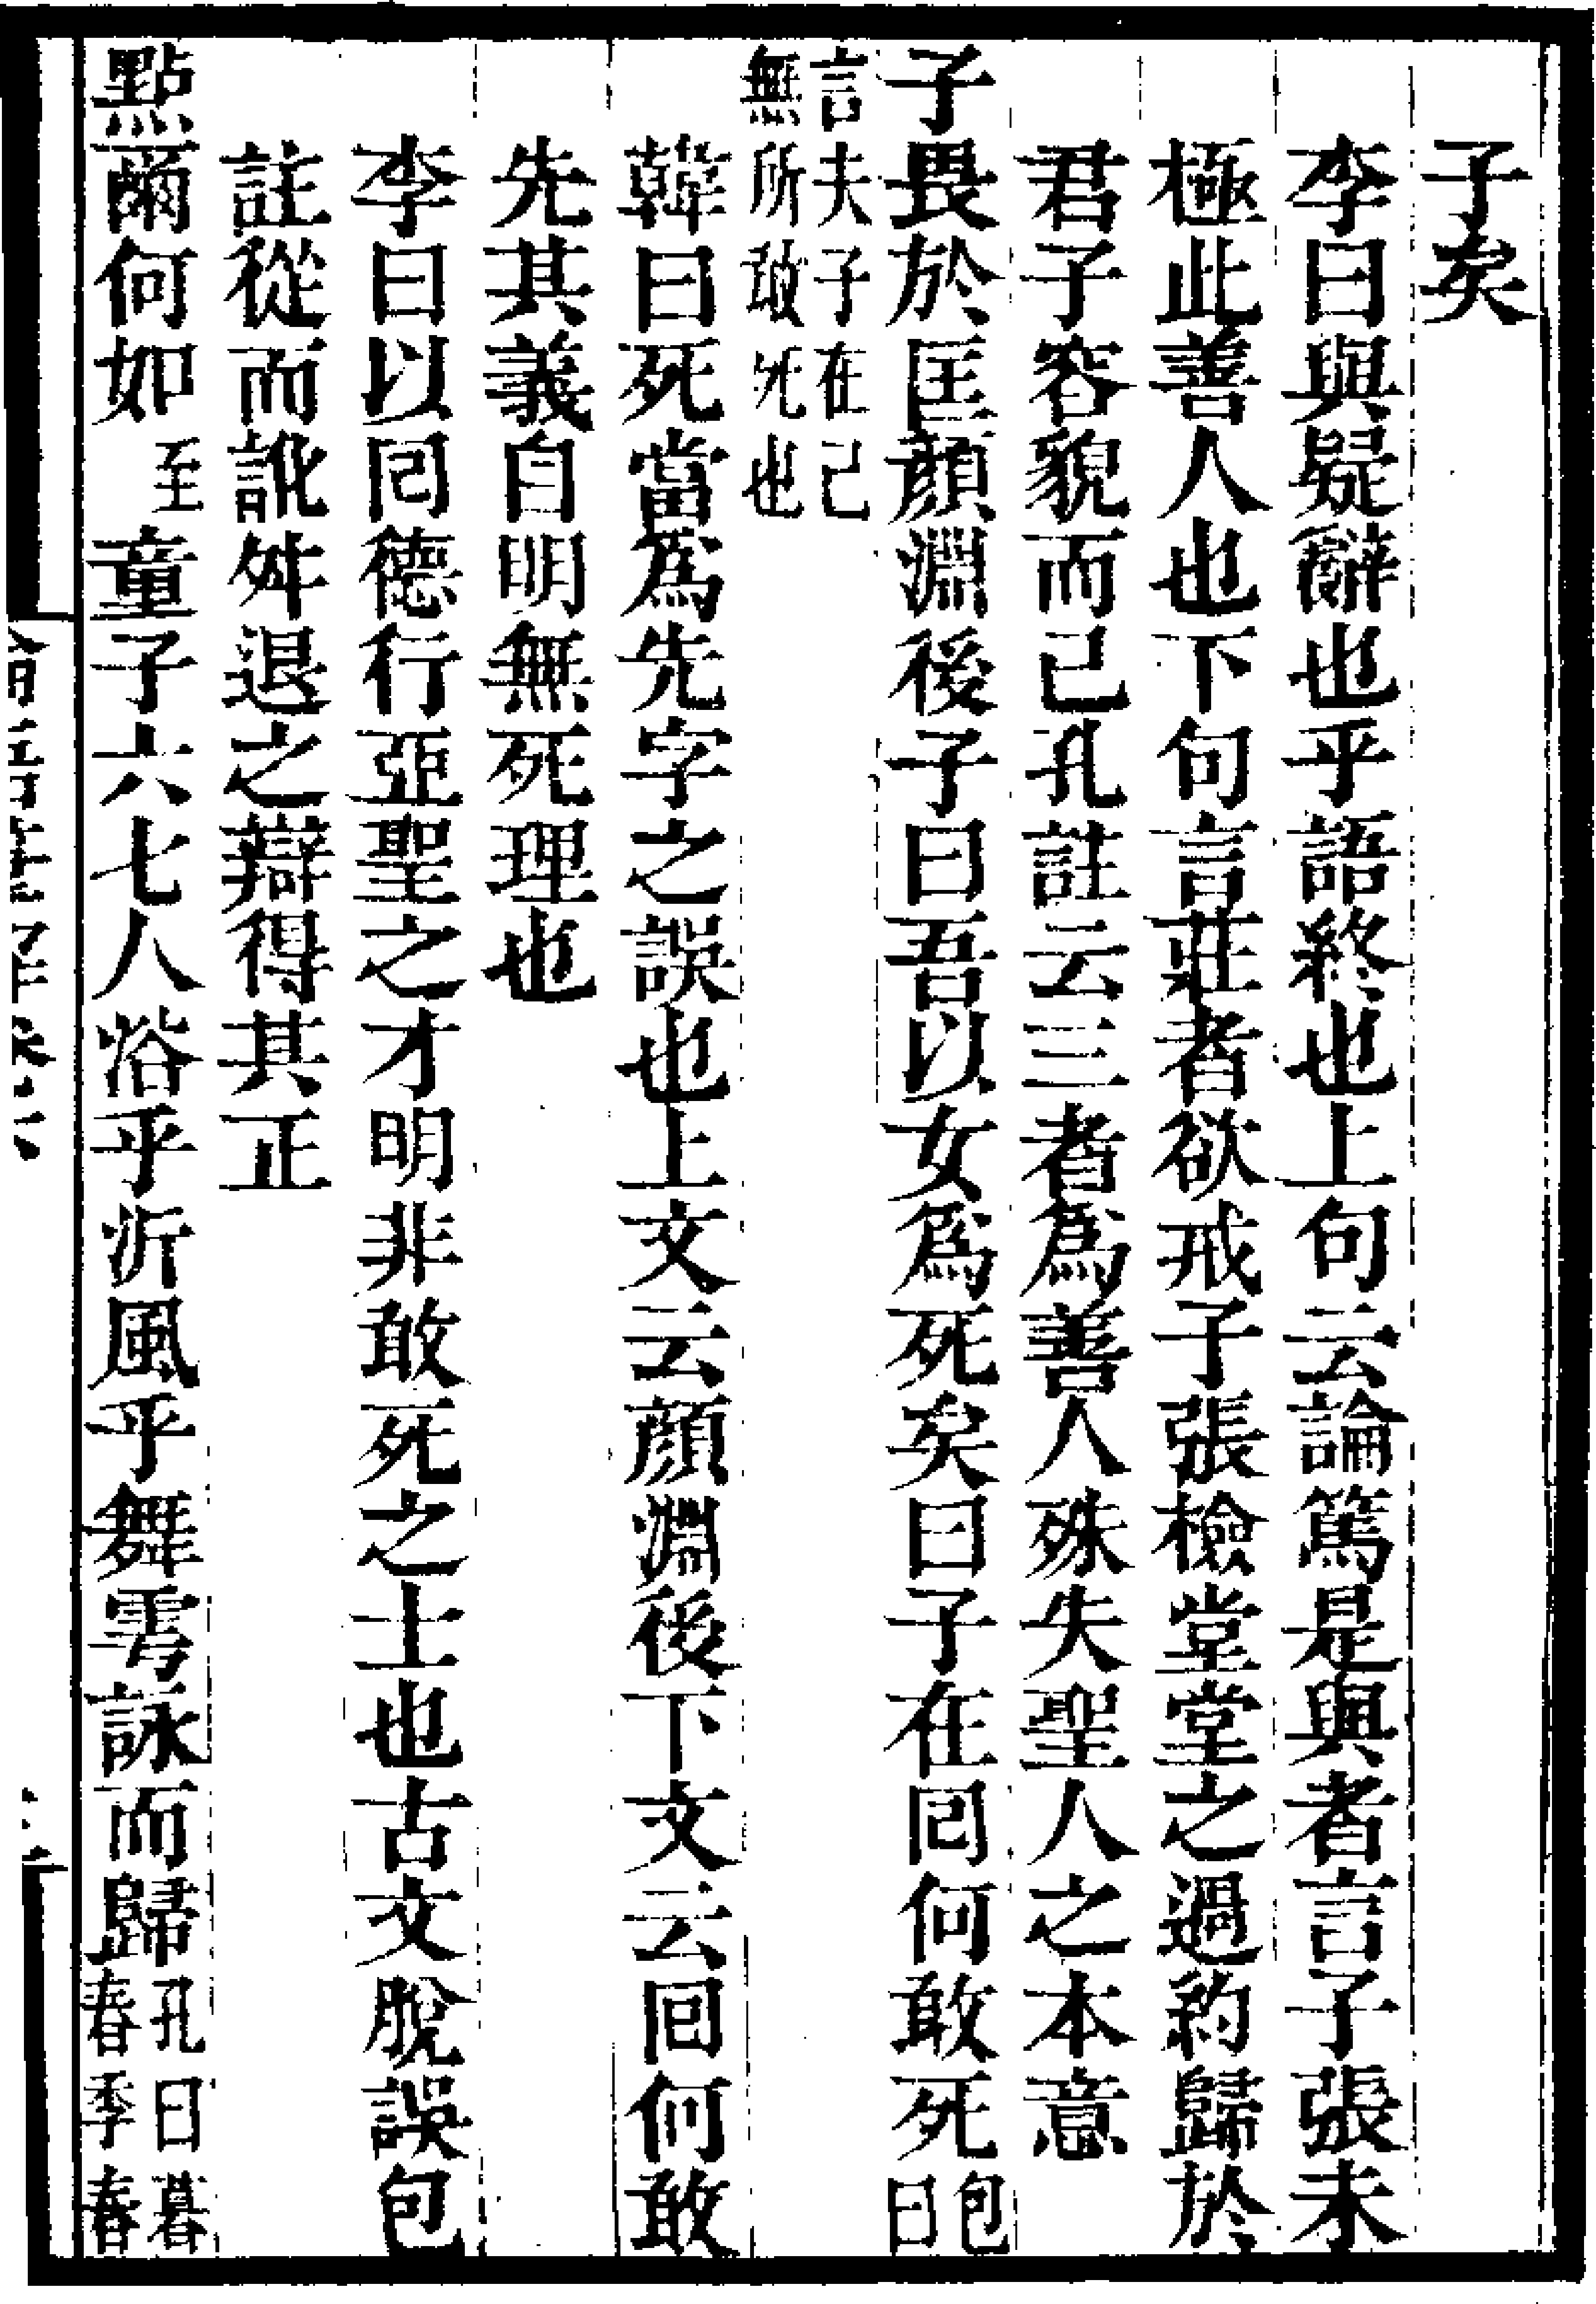 子矣
李曰與疑辭也乎語終也上句云論篤是與者言子張未
極此善人也下句言莊者欲戒子張檢堂堂之過約歸於
君子容貌而已孔註云三者為善人殊失聖人之本意
子畏於匡顏淵後子曰吾以女爲死矣曰子在回何敢死包曰
言夫子在已
無所敢死也
韓曰死當爲先字之誤也上文云顏淵後下文云回何敢
先其義自明無死理也
李曰以回德行亞聖之才明非敢死之士也古文脫誤包
註從而訛舛退之辯得其正
點爾何如至童子六七人浴乎沂風乎舞雩詠而歸孔曰暮春季春